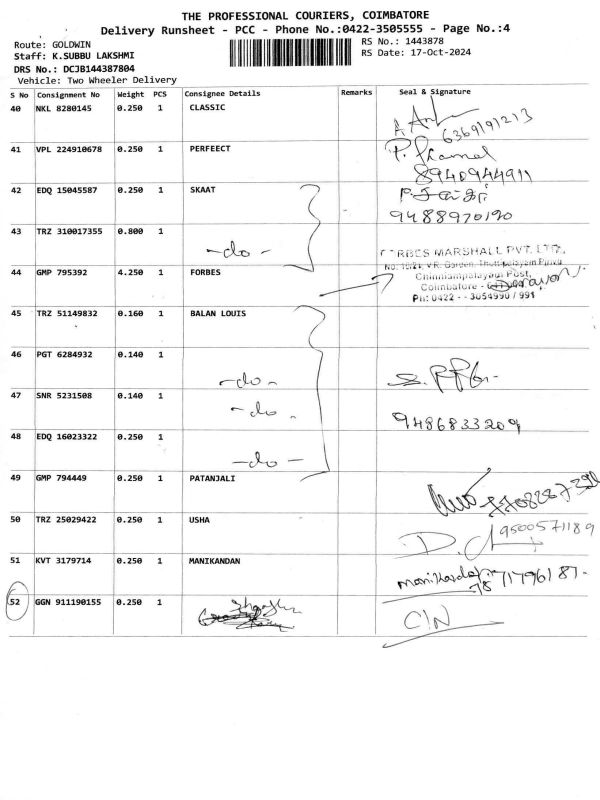 THE PROFESSIONAL COURIERS, COIMBATORE
Delivery Runsheet - PCC - Phone No.:0422-3505555 - Page No.:4
Route: GOLDWIN RS No.: 1443878
Staff: K.SUBBU LAKSHMI RS Date: 17-Oct-2024
DRS No.: DCJB144387804
Vehicle: Two Wheeler Delivery
S No Consignment No Weight PCS Consignee Details Remarks Seal & Signature
40 NKL 8280145 0.250 1 CLASSIC
6369191213
41 VPL 224910678 0.250 1 PERFEECT
8940944911
42 EDQ 15045587 0.250 1 SKAAT
9488970190
43 TRZ 310017355 0.800 1
-do-
FORBES MARSHALL PVT. LTD.,
44 GMP 795392 4.250 1 FORBES
Chinniampalayam Post,
Coimbatore -
Ph: 0422 - 3054990 / 991
45 TRZ 51149832 0.160 1 BALAN LOUIS
46 PGT 6284932 0.140 1
-do-
47 SNR 5231508 0.140 1
-do-
9486833209
48 EDQ 16023322 0.250 1
-do-
49 GMP 794449 0.250 1 PATANJALI
50 TRZ 25029422 0.250 1 USHA
9500571189
51 KVT 3179714 0.250 1 MANIKANDAN
7871796187-
52 GGN 911190155 0.250 1
C/N